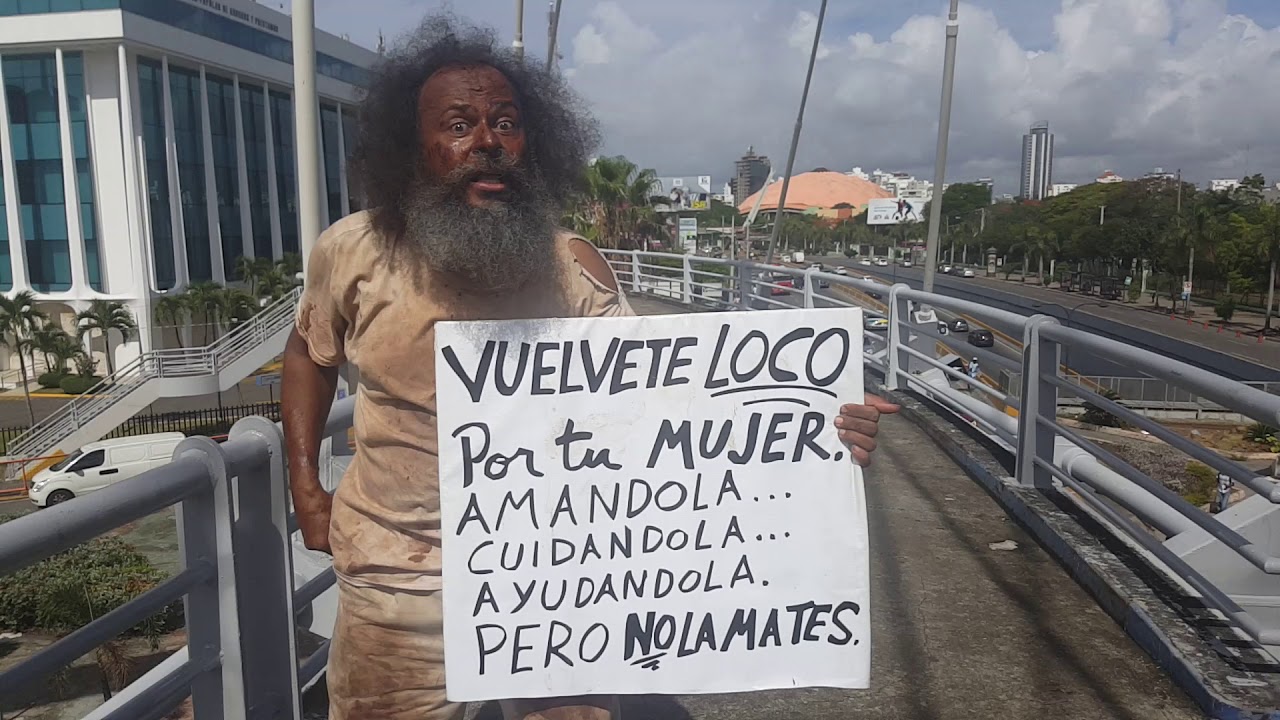 VUELVETE LOCO
Por tu MUJER.
AMANDOLA...
CUIDANDOLA...
AYUDANDOLA.
PERO NO LA MATES.